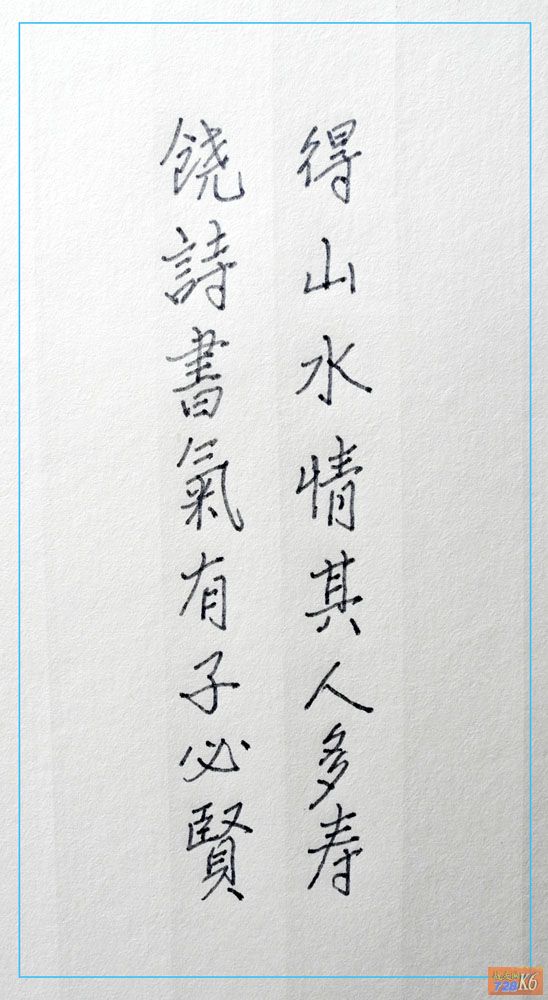 得山水情其人多寿
饒詩書氣有子必賢
728 K6